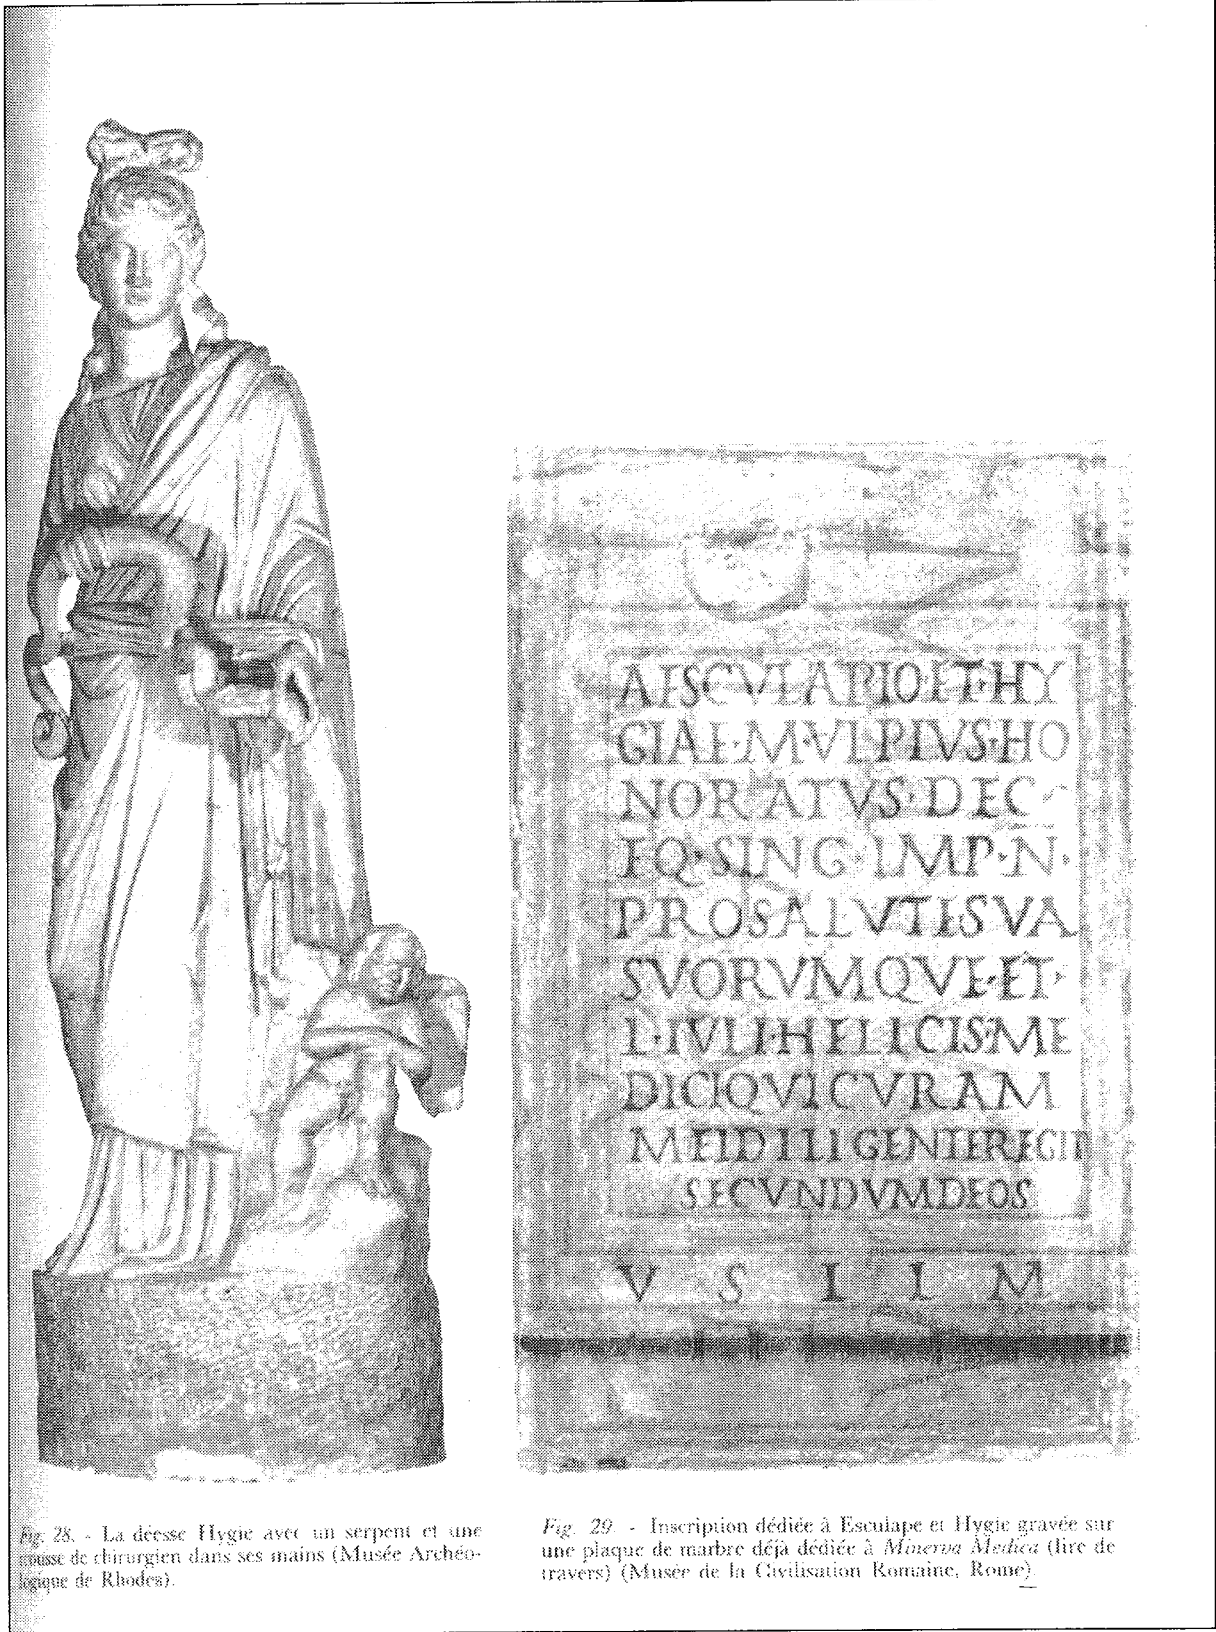 AESCVLAPIO·ET·HY
GIAE·M·VLPIVS·HO
NORATVS·DEC·
EQ·SING·IMP·N·
PROSALVTESVA
SVORVMQVE·ET·
L·IVLI·HELICIS·ME
DICIQVICVRAM
MEIDILIGENTEREGIT
SECVNDVMDEOS
V S L L M
Fig. 28. - La déesse Hygie avec un serpent et une
trousse de chirurgien dans ses mains (Musée Archéo-
logique de Rhodes).
Fig. 29. - Inscription dédiée à Esculape et Hygie gravée sur
une plaque de marbre déjà dédiée à Minerva Medica (lire de
travers) (Musée de la Civilisation Romaine, Rome).